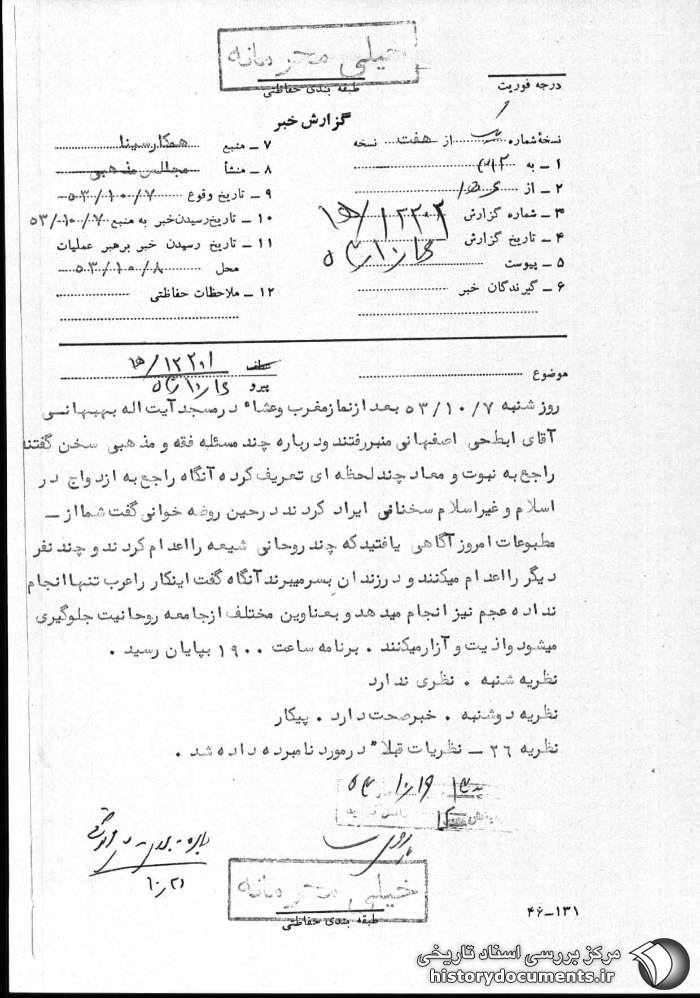 خیلی محرمانه
طبقه بندی حفاظتی
درجه فوریت
گزارش خبر
نسخهٔ شماره از هفت نسخه
۱ ـ به ۳۱۲
۲ ـ از
۳ ـ شماره گزارش
۴ ـ تاریخ گزارش
۵ ـ پیوست
۶ ـ گیرندگان خبر
۷ ـ منبع همکار سینا
۸ ـ منشأ مجالس مذهبی
۹ ـ تاریخ وقوع ۵۳/۱۰/۷
۱۰ ـ تاریخ رسیدن خبر به منبع ۵۳/۱۰/۷
۱۱ ـ تاریخ رسیدن خبر برهبر عملیات
محل ۵۳/۱۰/۸
۱۲ ـ ملاحظات حفاظتی
موضوع
عطف
پیرو
روز شنبه ۵۳/۱۰/۷ بعد از نماز مغرب وعشاء در مسجد آیت اله بهبهانی
آقای ابطحی اصفهانی منبر رفتند و درباره چند مسئله فقه و مذهبی سخن گفتند
راجع به نبوت و معاد چند لحظه ای تعریف کرده آنگاه راجع به ازدواج در
اسلام و غیر اسلام سخنانی ایراد کردند در حین روضه خوانی گفت شما از ـ
مطبوعات امروز آگاهی یافتید که چند روحانی شیعه را اعدام کردند و چند نفر
دیگر را اعدام میکنند و در زندان بسر میبرند آنگاه گفت اینکار را عرب تنها انجام
نداده عجم نیز انجام میدهد و بعناوین مختلف از جامعه روحانیت جلوگیری
میشود و اذیت و آزار میکنند . برنامه ساعت ۱۹۰۰ بپایان رسید .
نظریه شنبه . نظری ندارد
نظریه دوشنبه . خبر صحت دارد . پیکار
نظریه ۲۶ ـ نظریات قبلا" در مورد نامبرده داده شد .
خیلی محرمانه
طبقه بندی حفاظتی
۴۶-۱۳۱
مرکز بررسی اسناد تاریخی
historydocuments.ir